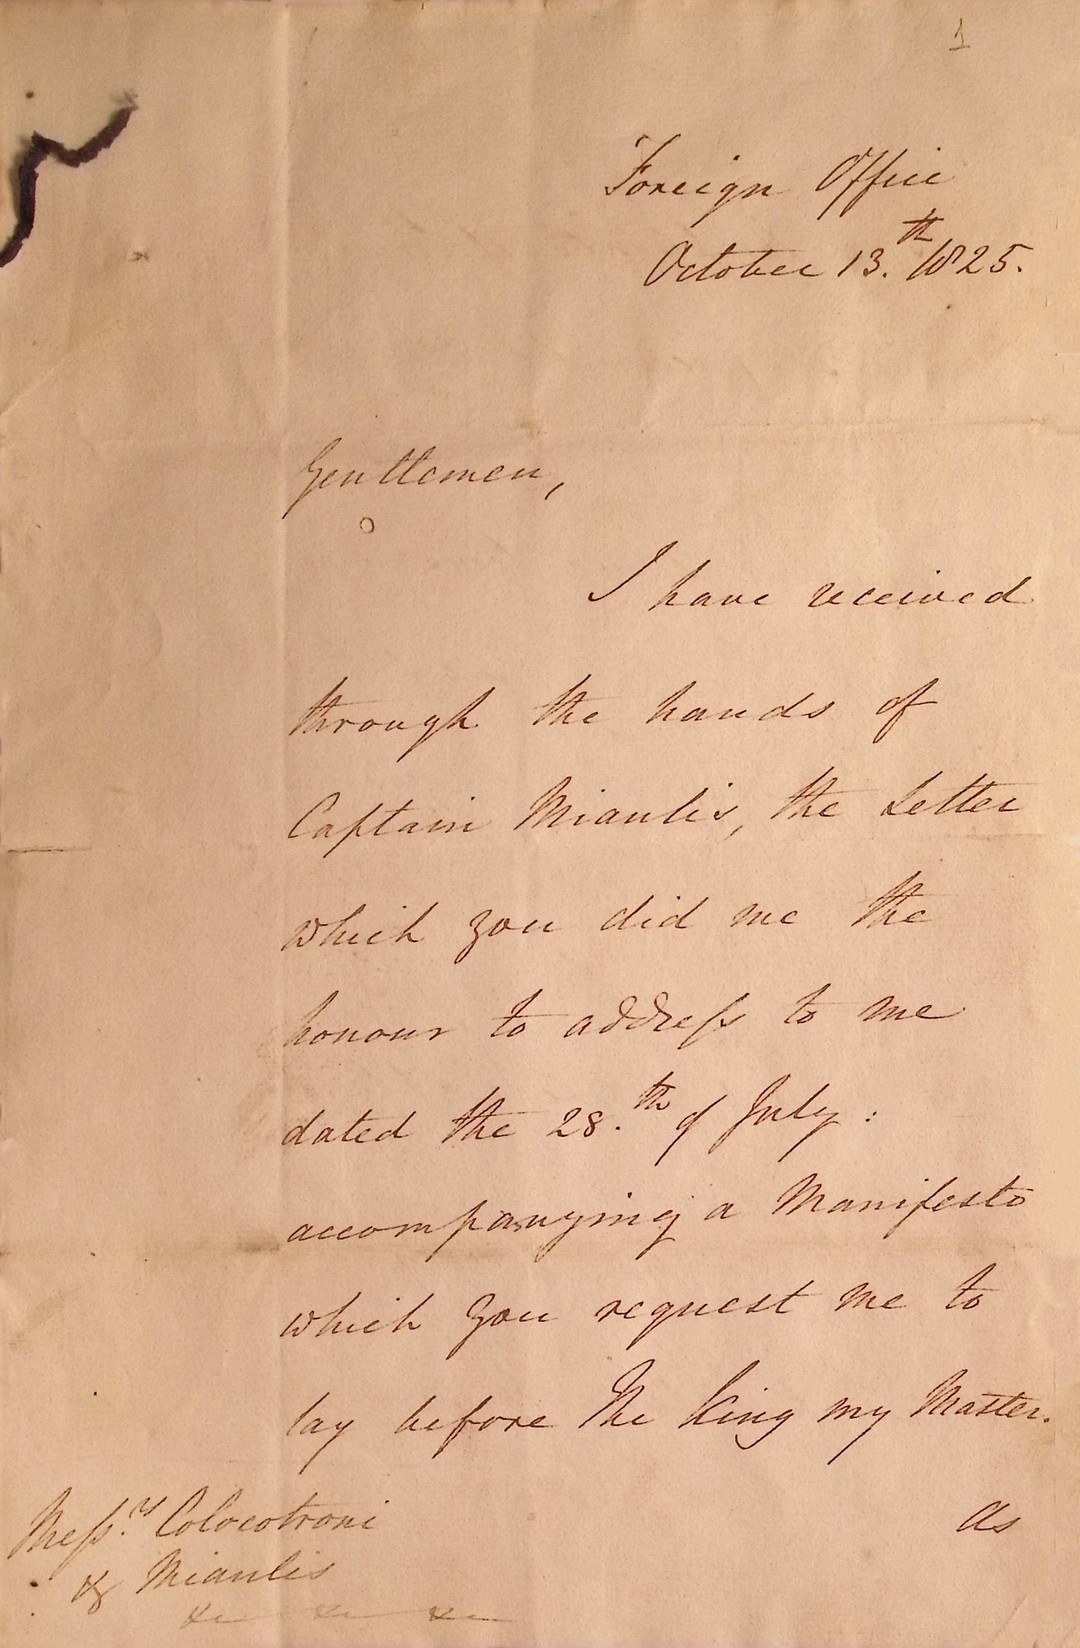 1
Foreign Office
October 13.th 1825.
Gentlemen,
I have received
through the hands of
Captain Miaulis, the Letter
which you did me the
honour to address to me
dated the 28.th of July:
accompanying a Manifesto
which you request me to
lay before The King my Master.
As
Mess.rs Colocotroni
& Miaulis
&c &c &c